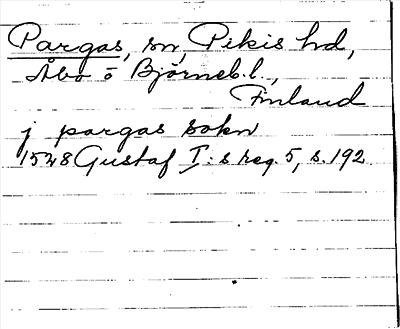 Pargas, sn, Pikis hd,
Åbo o Björneb. l.,
Finland
j pargas sokn
1548 Gustaf I:s reg. 5, s. 192